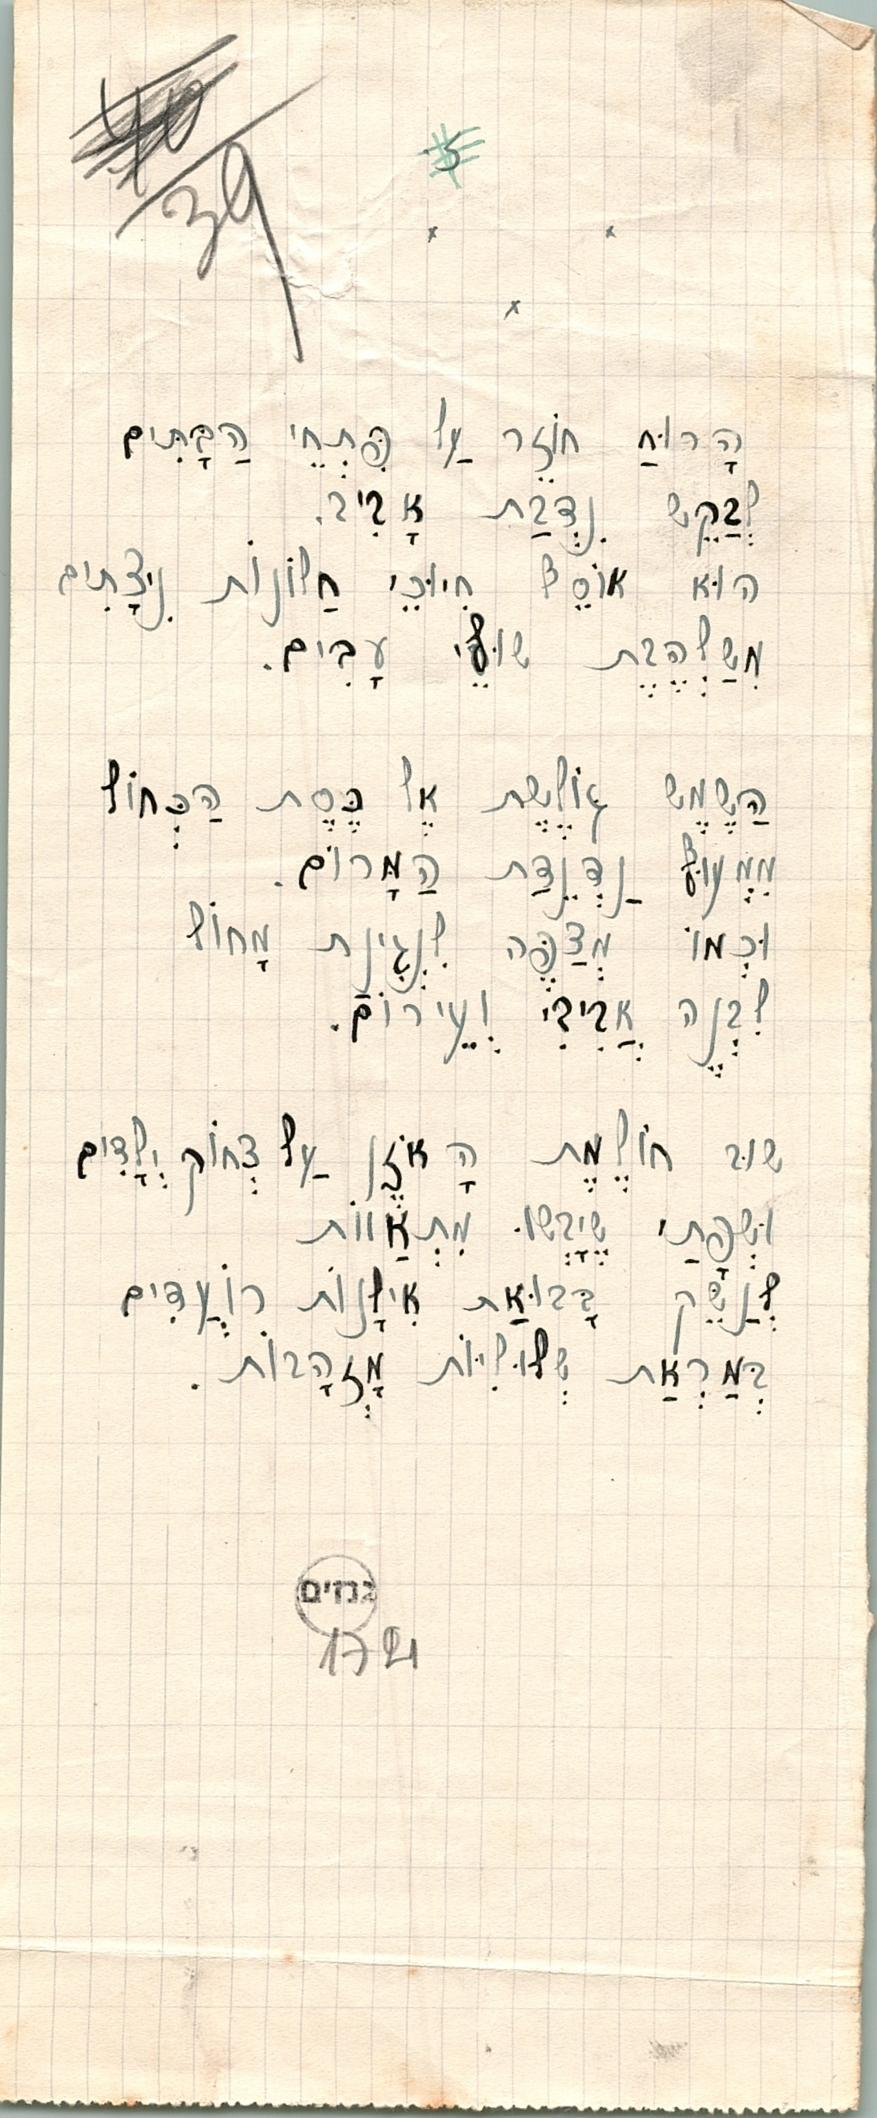 39
הָרוּחַ חוֹזֵר עַל פִּתְחֵי הַבָּתִּים
לְבַקֵּשׁ נִדְבַת אָבִיב.
הוּא אוֹסֵף חִיוּכֵי חַלּוֹנוֹת נִיצָּתִים
מִשַּׁלְהֶבֶת שׁוּלֵי עָבִים.
הַשֶּׁמֶשׁ גּוֹלֶשֶׁת אֶל כֶּסֶת הַכְּחוֹל
מִמְּעוּף נַדְנֵדַת הַמָּרוֹם.
וּכְמוֹ מְצַפֶּה לִנְגִינַת מָחוֹל
לִבְנֶה אֲבִיבִי וְעֵירוֹם.
שׁוּב חוֹלֶמֶת הָאֹזֶן עַל צְחוֹק יְלָדִים
וּשְׂפָתַי שֶׁיָּבְשׁוּ מִתְּאֲווֹת
לְנַשֵּׁק בָּבוּאַת אִילָנוֹת רוֹעֲדִים
בְּמַרְאַת שְׁלוּלִיּוֹת מָזְהָבוֹת.
גנזים
1721